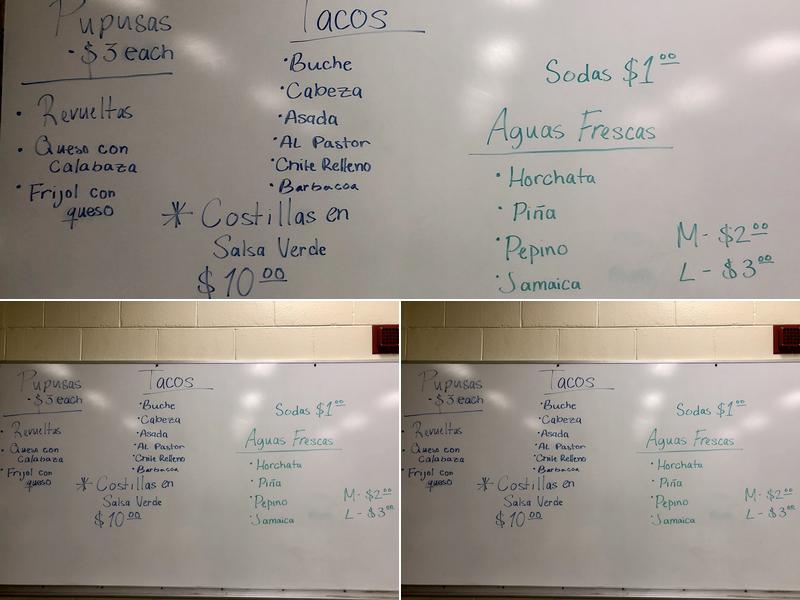 Pupusas
- $3 each
• Revueltas
• Queso con
Calabaza
• Frijol con
queso
Tacos
• Buche
• Cabeza
• Asada
• AL Pastor
• Chile Relleno
• Barbacoa
* Costillas en
Salsa Verde
$10.00
Sodas $1.00
Aguas Frescas
• Horchata
• Piña
• Pepino
• Jamaica
M - $2.00
L - $3.00
Pupusas
- $3 each
• Revueltas
• Queso con
Calabaza
• Frijol con
queso
Tacos
• Buche
• Cabeza
• Asada
• AL Pastor
• Chile Relleno
• Barbacoa
* Costillas en
Salsa Verde
$10.00
Sodas $1.00
Aguas Frescas
• Horchata
• Piña
• Pepino
• Jamaica
M - $2.00
L - $3.00
Pupusas
- $3 each
• Revueltas
• Queso con
Calabaza
• Frijol con
queso
Tacos
• Buche
• Cabeza
• Asada
• AL Pastor
• Chile Relleno
• Barbacoa
* Costillas en
Salsa Verde
$10.00
Sodas $1.00
Aguas Frescas
• Horchata
• Piña
• Pepino
• Jamaica
M - $2.00
L - $3.00